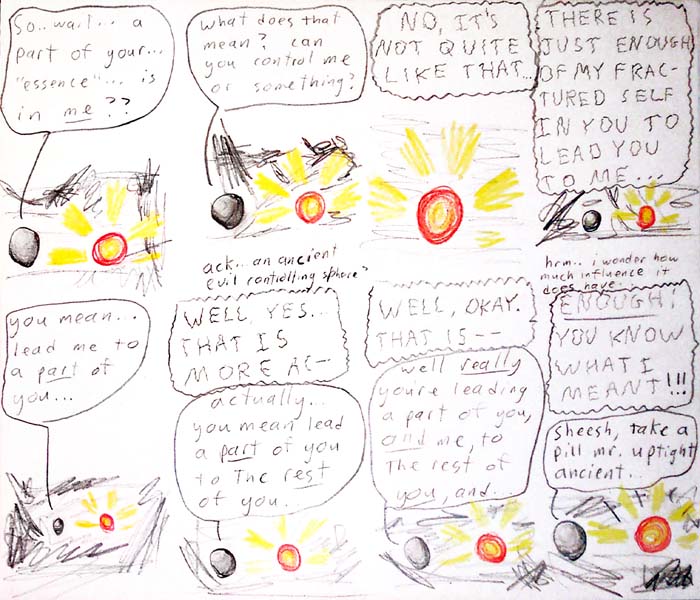 So.. wait.. a
part of your...
"essence"... is
in me ??
What does that
mean? can
you control me
or something?
NO, IT'S
NOT QUITE
LIKE THAT...
THERE IS
JUST ENOUGH
OF MY FRAC-
TURED SELF
IN YOU TO
LEAD YOU
TO ME...
ack.. an ancient
evil controllting sphere?
hrm.. i wonder how
much influence it
does have.
you mean..
lead me to
a part of
you...
WELL YES...
THAT IS
MORE AC-
actually...
you mean lead
a part of you
to The rest
of you.
WELL OKAY.
THAT IS--
well really
you're leading
a part of you,
and me, to
The rest of
you, and.
ENOUGH!
YOU KNOW
WHAT I
MEANT!!!
sheesh, take a
pill mr. uptight
ancient..